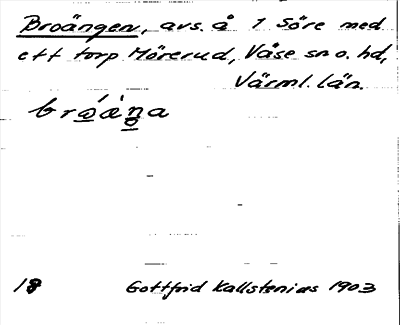 Broängen, avs. å 1 Söre med
ett torp Mörerud, Våse sn o. hd,
Värml. län.
18 Gottfrid Kallstenius 1903